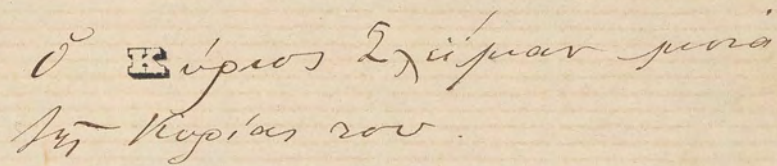 Ὁ Κύριος Σλήμαν μετὰ
τῆς Κυρίας του.